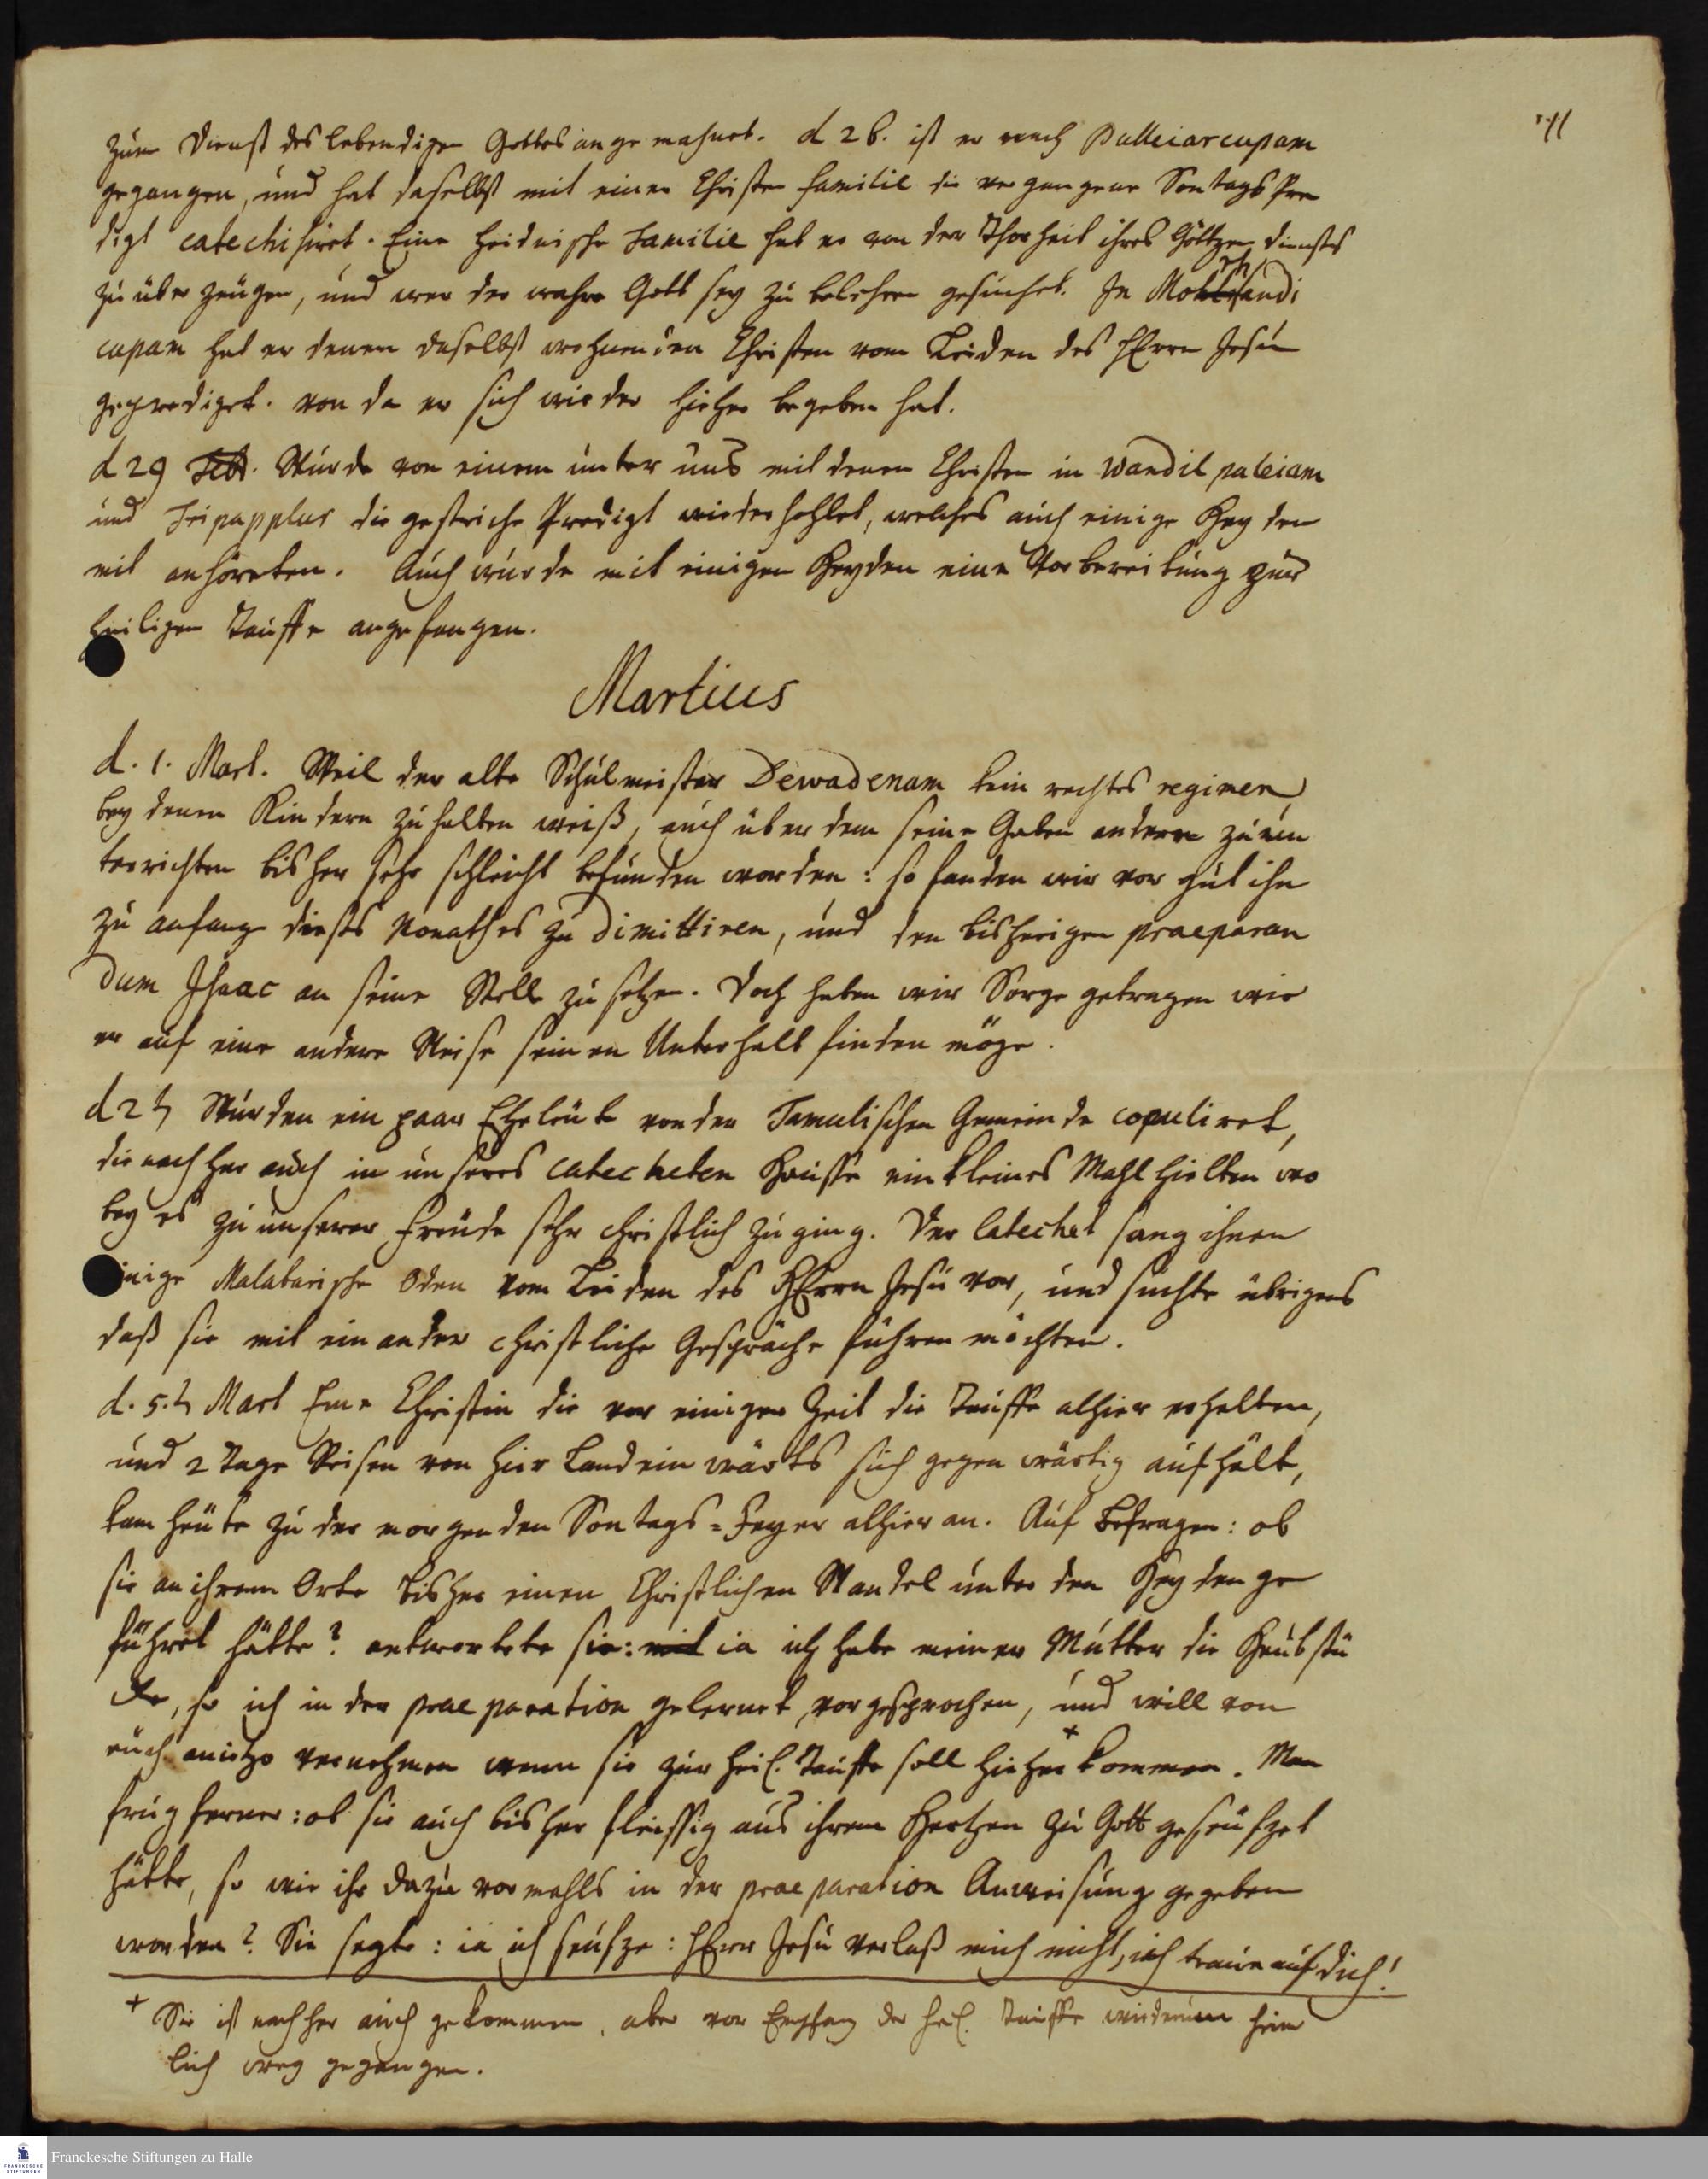 zum Dienst des lebendigen Gottes angemahnet. d 26. ist er nach Palleiarcupam
gegangen, und hat daselbst mit einer Christen familie die vergangene Sontags Pre
digt catechisiret. Eine Heidnische Familie hat er von der Thorheit ihres Göttzen dienstes
zu über zeugen, und wer der wahre Gott sey zu belehren gesuchet. In
cupam hat er denen daselbst wohnenden Christen vom Leiden des HErrn Jesu
geprediget. von da er sich wieder hieher begeben hat.
d 29 Febr. Wurde von einem unter uns mit denen Christen in Wandil paleiam
und Tripapplur die gestriche Predigt wiederhohlet, welches auch einige Heyden
mit anhöreten. Auch wurde mit einigen Heyden eine Vorbereitung zur
heiligen Tauffe angefangen.
Martius
d. 1. Mart. Weil der alte Schulmeister Dewadenam kein rechtes regimen
bey denen Kindern zu halten weiß, auch über dem seine Gaben andere zu un
terrichten bisher sehr schlecht befunden worden: so fanden wir vor gut ihn
zu anfange dieses Monathes zu dimittiren, und den bisherigen praeparan
dum Isaac an seine Stelle zu setzen. Doch haben wir Sorge getragen wie
er auf eine andere Weise seinen Unterhalt finden möge.
d 2 ♄ Wurden ein paar Eheleute von der Tamulischen Gemeinde copuliret,
die nachher auch in unseres catecheten Hausse ein kleines Mahl hielten wo
bey es zu unserer Freude sehr christlich zu ging. Der Catechet sang ihnen
einige Malabarische Oden vom Leiden des HErrn Jesu vor, und suchte übrigens
daß sie mit einander christliche Gespräche führen möchten.
d. 5. ♄ Mart Eine Christin die vor einiger Zeit die Tauffe alhier erhalten,
und 2 Tage Reisen von hier Landeinwärts sich gegenwärtig aufhält,
kam heute zu der morgenden Sontags-Feyer alhier an. Auf Befragen: ob
sie an ihrem Orte bisher einen Christlichen Wandel unter den Heyden ge
führet hätte? antwortete sie: mit ia ich habe meiner Mutter die Haubtstü
cke, so ich in der praeparation gelernet, vorgesprochen, und will von
euch anietzo vernehmen wenn sie zur heil. Tauffe soll hieher + kommen. Man
frug ferner: ob sie auch bisher fleissig aus ihrem Hertzen zu Gott geseufzet
hätte, so wie ihr dazu vormahls in der praeparation Anweisung gegeben
worden? Sie sagte: ia ich seufze: HErr Jesu verlaß mich nicht, ich traue auf dich!
+ Sie ist nachher auch gekommen, aber vor Empfang der heil. Tauffe wiederum heim
lich weg gegangen.
Franckesche Stiftungen zu Halle